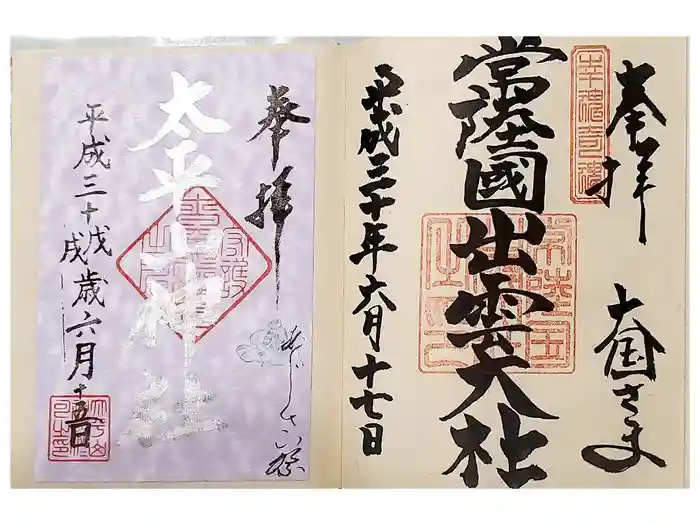 奉拝
大国さま
幸魂奇魂
常陸國出雲大社
平成三十年六月十七日
奉拝
あじさい祭
太平山神社
平成三十戊戌歳六月十五日